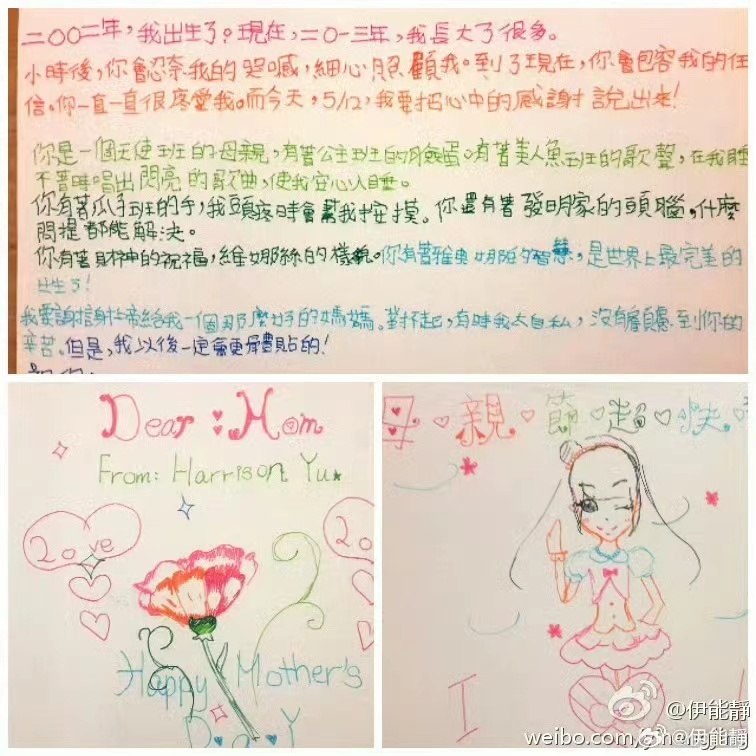 二00二年，我出生了？現在，二0一三年，我長大了很多。
小時後，你會忍奈我的哭喊，細心照顧我。到了現在，你會包容我的任
信。你一直一直很疼愛我。而今天，5/12，我要把心中的感謝說出來！
你是一個天使班的母親，有著公主班的臉蛋。有著美人魚班的歌聲，在我睡
不著時唱出閃亮的歌曲，使我安心入睡。
你有著瓜子班的手，我頭疼時會幫我按摸。你還有著發明家的頭腦，什麼
問提都能解決。
你有著財神的祝福，維娜絲的樣貌。你有著雅典娜的智慧，是世界上最完美的
出生了！
我要謝上帝給我一個那麼好的媽媽。對不起，有時我太自私，沒有顧慮到你的
辛苦。但是，我以後一定會更體貼的！
Dear : Mom
From: Harrison Yu
Love
Love
Happy Mother's
Day
母♡親♡節♡超♡快
I
@伊能靜
weibo.com @伊能靜